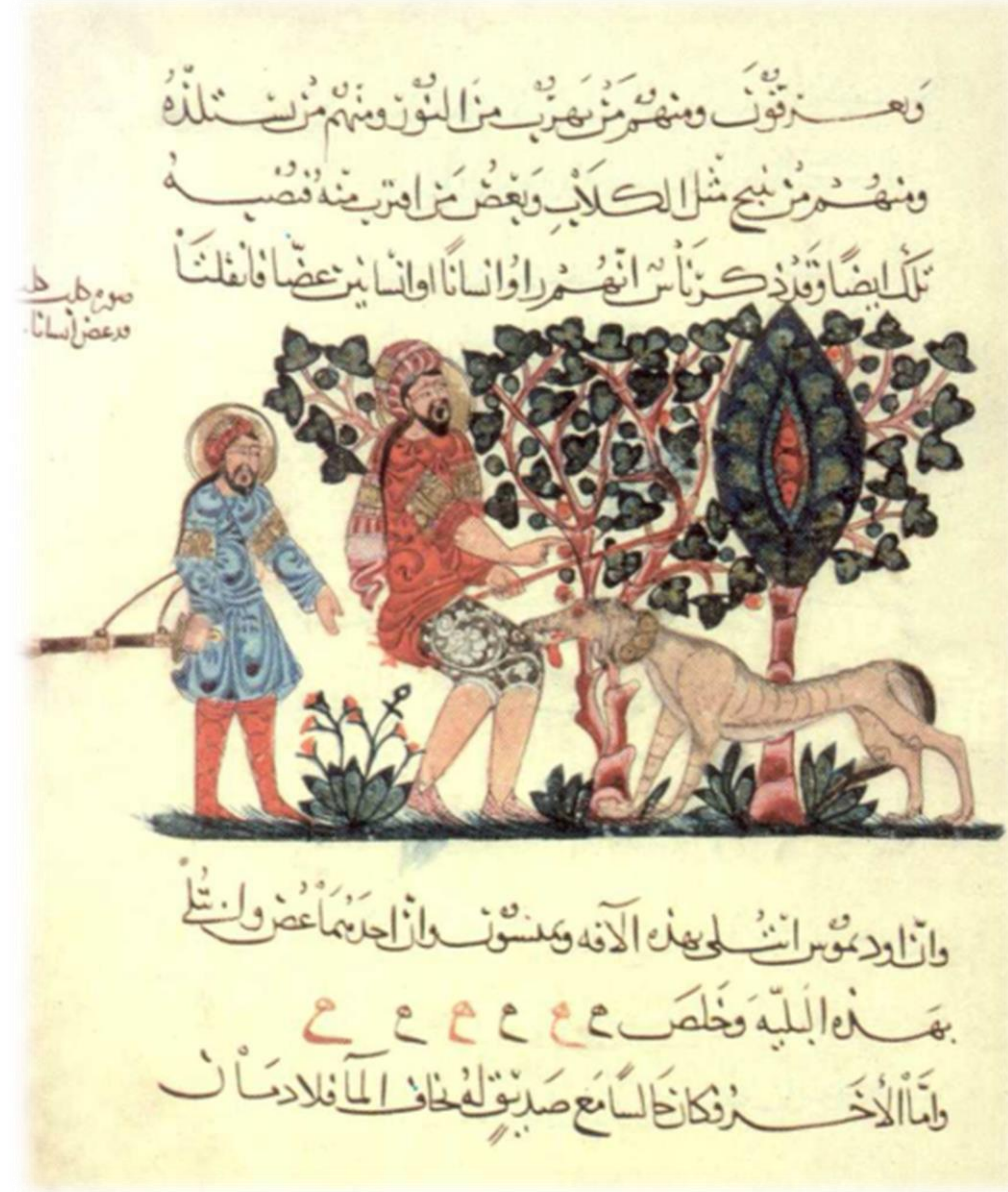 وبعـ ـزقون ومنهم من يهرب من النور ومنهم من يستلذه
ومنهم من نبيح مثل الكلاب وبعض من اقترب منه فتصيبه
تلك ايضا وقد ذكر ناس انهم راوا انسانا او انسانين عضا فانفلتا
صوره كلب كلب
قد عض انسانا
وان اوديموس ابتلى بهذه الآفه وان احدهما عض وابتلى
بهذه البليه وخلص ه ه ه ه ه ه
واما الأخر فكان جالسا مع صديق له يخاف الما فلا دمان